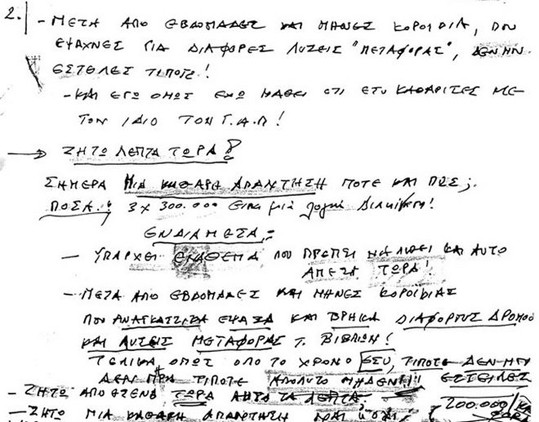 2. - ΜΕΤΑ ΑΠΟ ΕΒΔΟΜΑΔΕΣ ΚΑΙ ΜΗΝΕΣ ΚΟΡΟΙΔΙΑ, ΠΟΥ
ΕΨΑΧΝΕΣ ΓΙΑ ΔΙΑΦΟΡΕΣ ΛΥΣΕΙΣ "ΜΕΤΑΦΟΡΑΣ", ΔΕΝ ΜΗ
ΕΣΤΕΙΛΕΣ ΤΙΠΟΤΕ!
- ΚΑΙ ΕΓΩ ΟΜΩΣ ΕΧΩ ΜΑΘΕΙ ΟΤΙ ΕΣΥ ΚΑΘΑΡΙΣΕΣ ΜΕ
ΤΟΝ ΙΔΙΟ ΤΟΝ Γ.Α.Π!
→ ΖΗΤΩ ΛΕΠΤΑ ΤΩΡΑ!
ΣΗΜΕΡΑ ΜΙΑ ΚΑΘΑΡΗ ΑΠΑΝΤΗΣΗ ΠΟΤΕ ΚΑΙ ΠΩΣ;
ΠΟΣΑ! 3 x 300.000 Είναι μιά
ΕΝΔΙΑΜΕΣΑ:
- ΥΠΑΡΧΕΙ ΕΚΑΘΕΜΑ ΠΟΥ ΠΡΕΠΕΙ ΝΑ ΛΥΘΕΙ ΚΑΙ ΑΥΤΟ
ΑΜΕΣΑ ΤΩΡΑ!
- ΜΕΤΑ ΑΠΟ ΕΒΔΟΜΑΔΕΣ ΚΑΙ ΜΗΝΕΣ ΚΟΡΟΙΔΙΑΣ
ΠΟΥ ΑΝΑΓΚΑΣΤΙΚΑ ΕΨΑΞΑ ΚΑΙ ΒΡΗΚΑ ΔΙΑΦΟΡΟΥΣ ΔΡΟΜΟΥ
ΚΑΙ ΛΥΣΕΙΣ ΜΕΤΑΦΟΡΑΣ Τ. ΒΙΒΛΙΩΝ!
ΤΕΛΙΚΑ, ΟΠΩΣ ΟΠΟ ΤΟ ΧΡΟΝΟ ΕΣΥ, ΤΙΠΟΤΕ ΔΕΝ ΜΗ
ΔΕΝ ΤΙΠΟΤΕ ΑΠΟΛΥΤΟ ΜΗΔΕΝ!!! ΕΣΤΕΙΛΕΣ
- ΖΗΤΩ ΑΠΟ ΕΣΕΝΑ ΤΩΡΑ ΑΥΤΟ ΤΑ ΛΕΠΤΑ. 200.000/
- ΖΗΤΩ ΜΙΑ ΚΑΘΑΡΗ ΑΠΑΝΤΗΣΗ ΚΑΙ